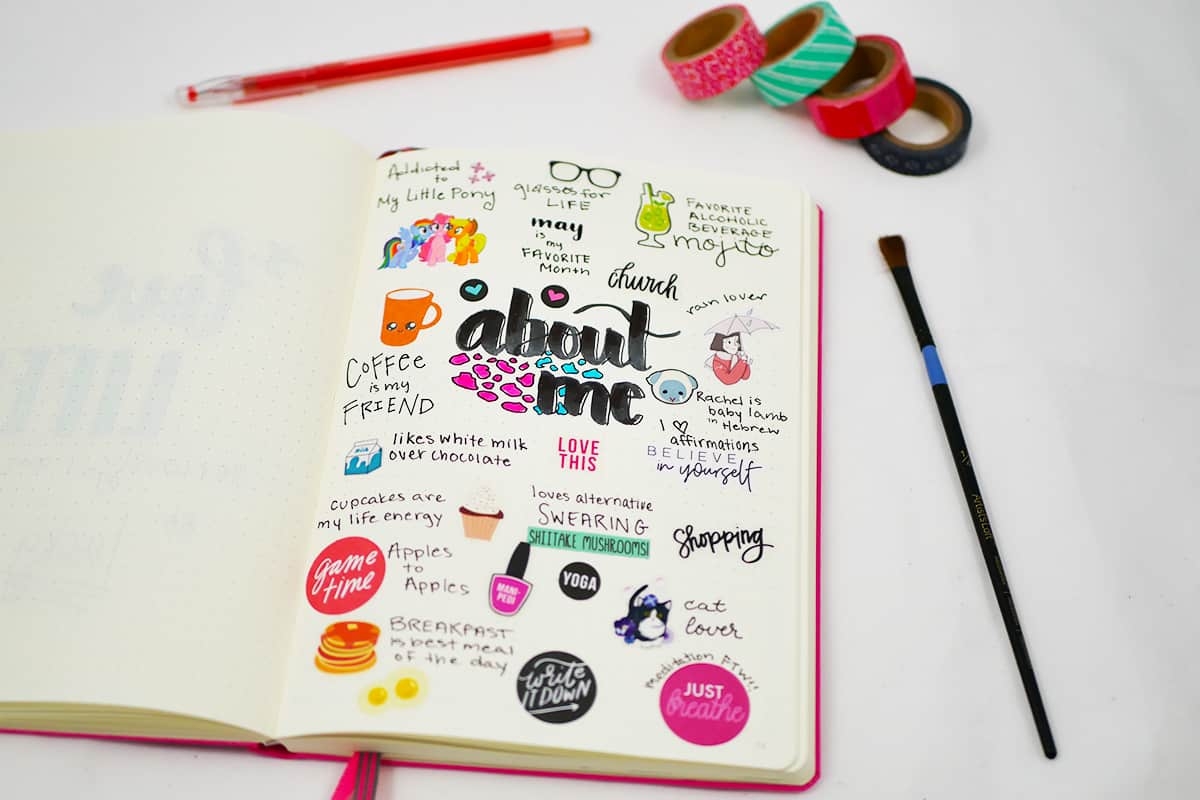 Addicted
to
My Little Pony
glasses for
LIFE
FAVORITE
ALCOHOLIC
BEVERAGE
mojito
may
is
my
FAVORITE
Month
church
rain lover
about
me
COFFEE
is my
FRIEND
Rachel is
baby lamb
in Hebrew
I ♡
affirmations
BELIEVE
in yourself
likes white milk
over chocolate
LOVE
THIS
cupcakes are
my life energy
loves alternative
SWEARING
SHIITAKE MUSHROOMS!
shopping
game
time
Apples
to
Apples
MANI-
PEDI
YOGA
cat
lover
BREAKFAST
is best meal
of the day
write
IT DOWN
meditation FTW!!
JUST
breathe